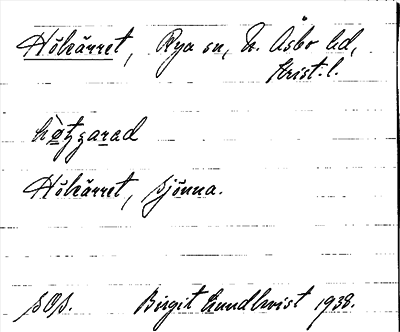 Hökärret, Rya sn, N. Åsbo hd,
Krist. l.
Hökärret, sjönna.
SOS. Birgit Lundkvist 1938.